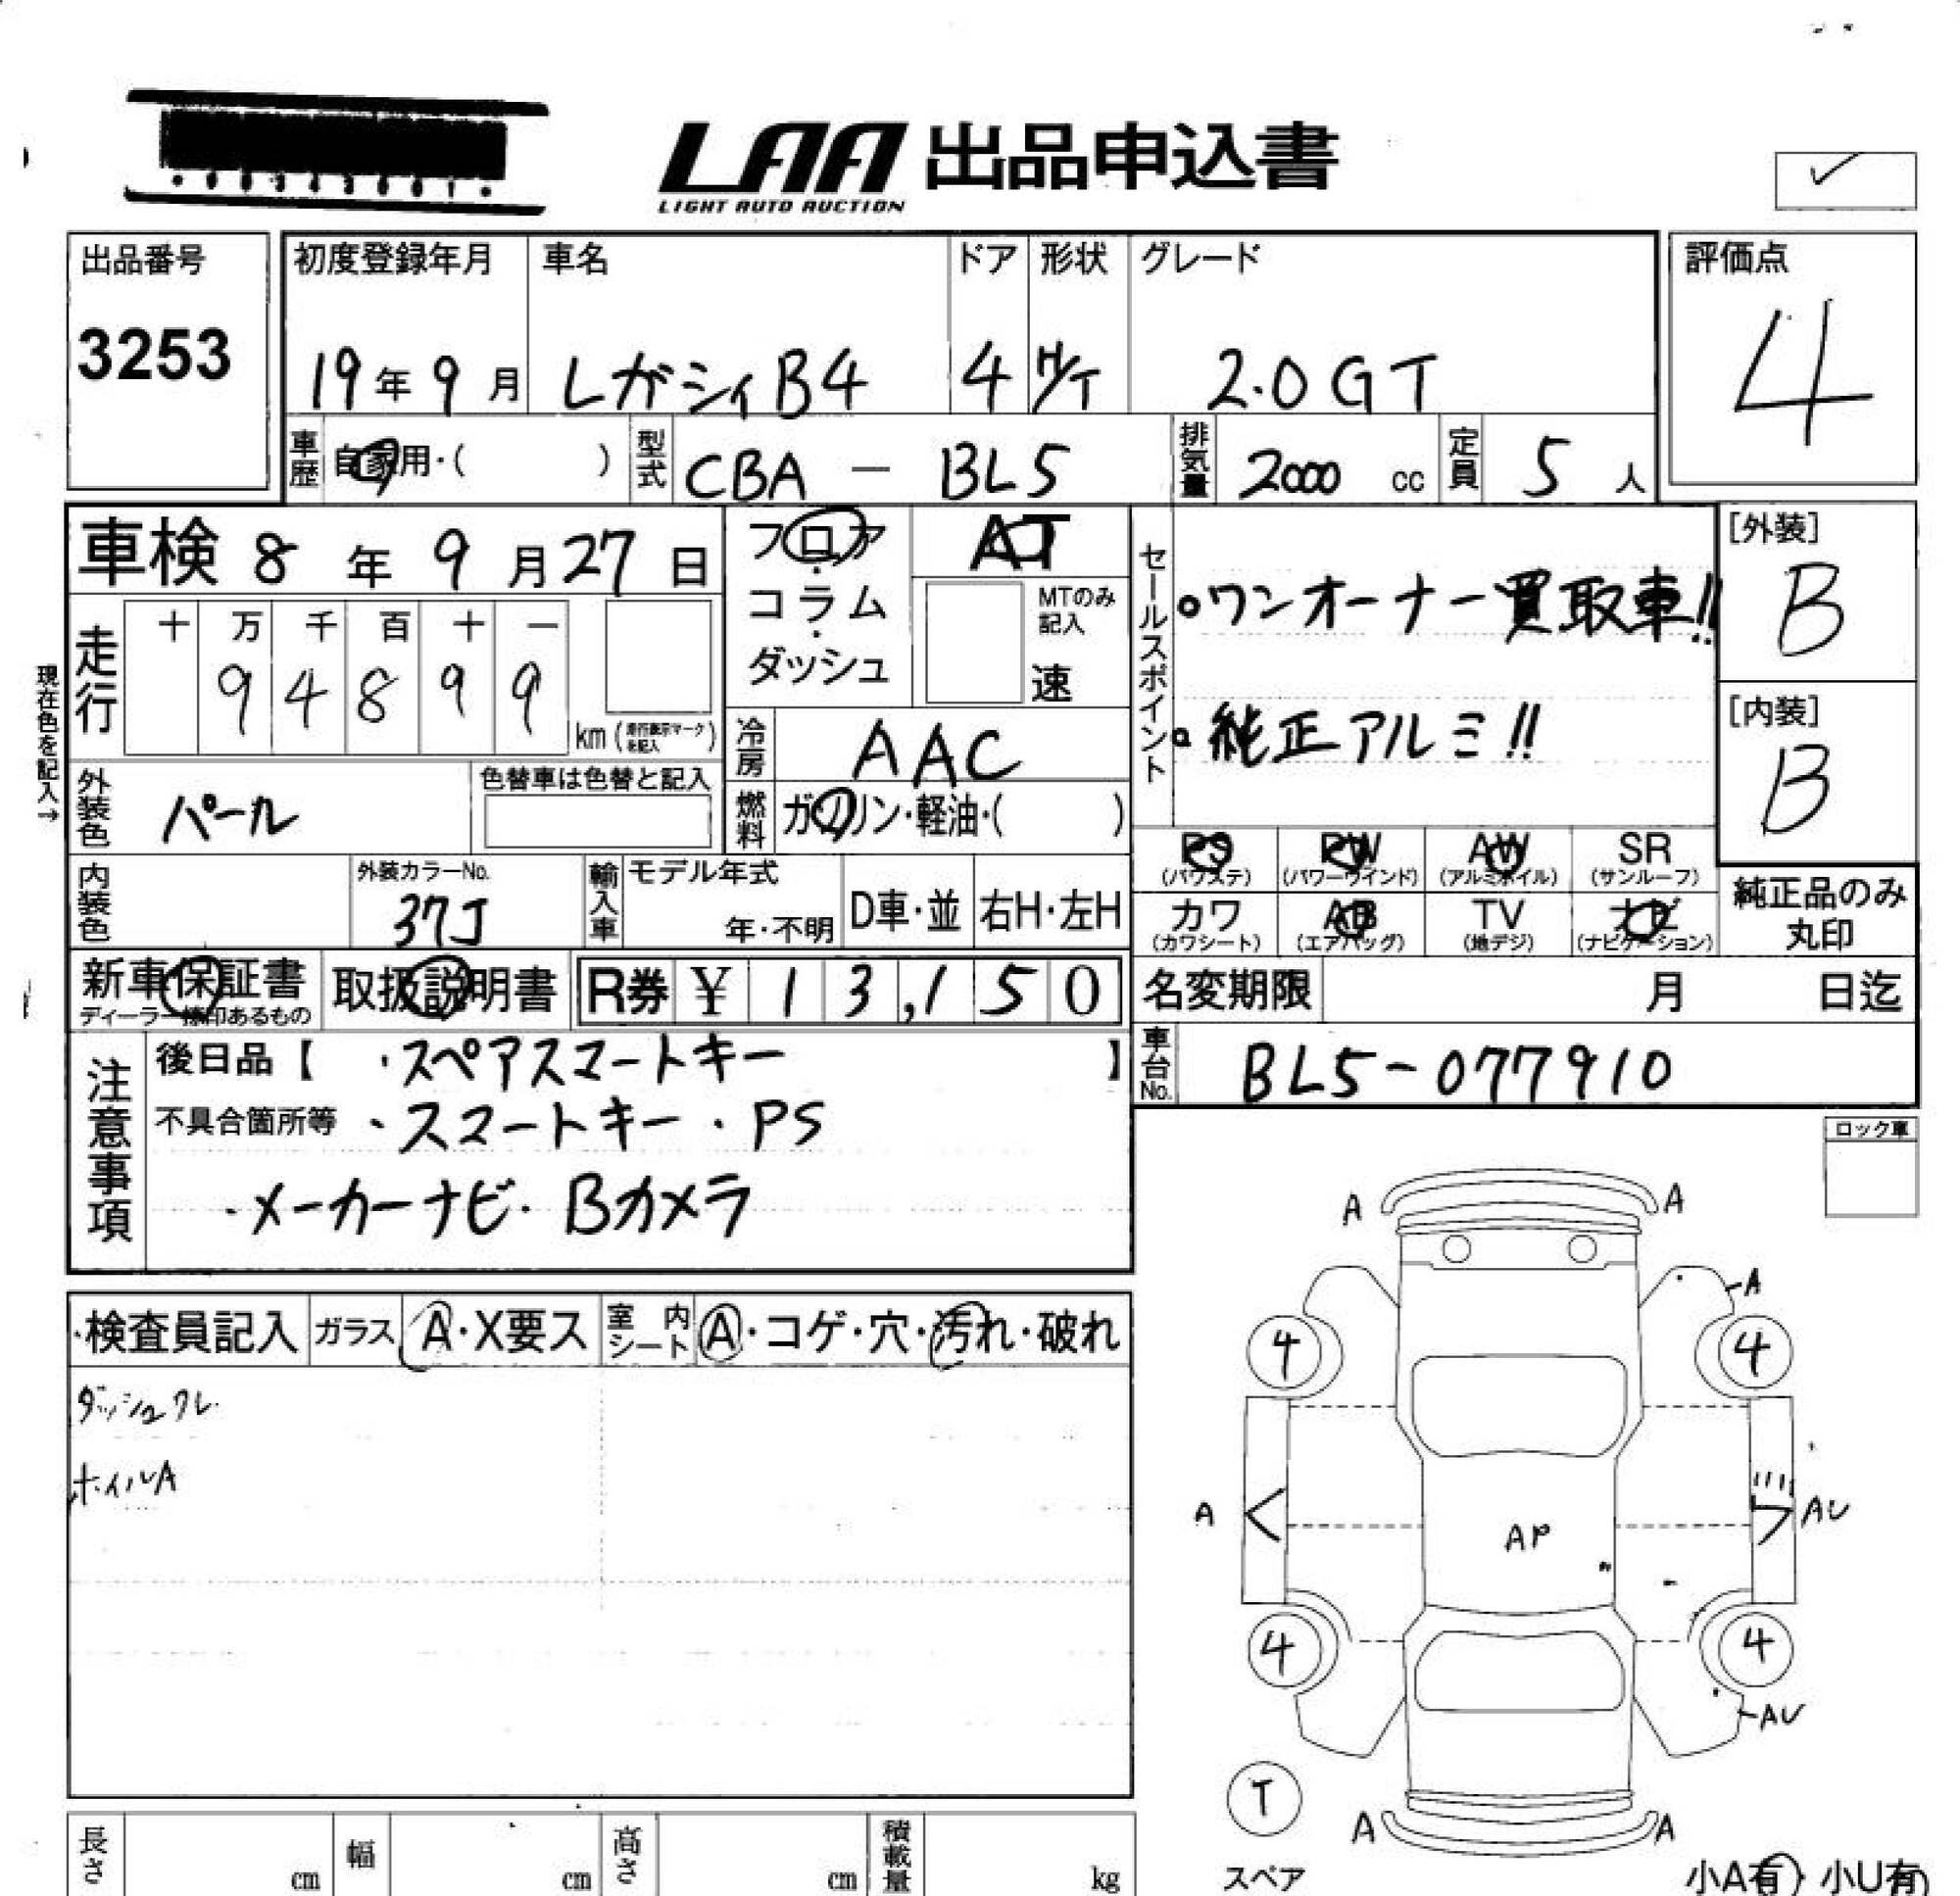 LAA 出品申込書
LIGHT AUTO AUCTION
出品番号 初度登録年月 車名 ドア 形状 グレード 評価点
3253 19年9月 レガシィB4 4 H/T 2.0GT 4
車歴 自家用・( ) 型式 CBA - BL5 排気量 2000 cc 定員 5 人
車検 8年9月27日 フロア・コラム・ダッシュ AT
MTのみ記入 速
セールスポイント
ワンオーナー買取車!!
純正アルミ!!
[外装] B
[内装] B
現在色を記入→
走行 十 万 千 百 十 一
9 4 8 9 9 km(走行表示マークを記入)
冷房 AAC
外装色 パール 色替車は色替と記入
燃料 ガソリン・軽油・( )
PS (パワステ) PW (パワーウインド) AW (アルミホイル) SR (サンルーフ)
カワ (カワシート) AB (エアバッグ) TV (地デジ) ナビ (ナビゲーション)
純正品のみ丸印
内装色 外装カラーNo. 37J 輸入車 モデル年式 年・不明 D車・並 右H・左H
新車保証書 ディーラー捺印あるもの 取扱説明書 R券 ¥13,150
名変期限 月 日迄
車台No. BL5-077910
注意事項
後日品【 ・スペアスマートキー 】
不具合箇所等 ・スマートキー・PS
・メーカーナビ・Bカメラ
ロック車
検査員記入 ガラス A・X要ス 室内シート A・コゲ・穴・汚れ・破れ
ダッシュワレ
ホイルA
A A
A
4 4
A AU
AP
4 4
AU
T
スペア
A A
長さ cm 幅 cm 高さ cm 積載量 kg
小A有 小U有